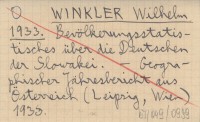 WINKLER Wilhelm
1933. Bevölkerungsstatis-
tisches über die Deutschen
der Slovakei. Geogra-
phischer Jahresbericht aus
Österreich (Leipzig, Wien)
1933.